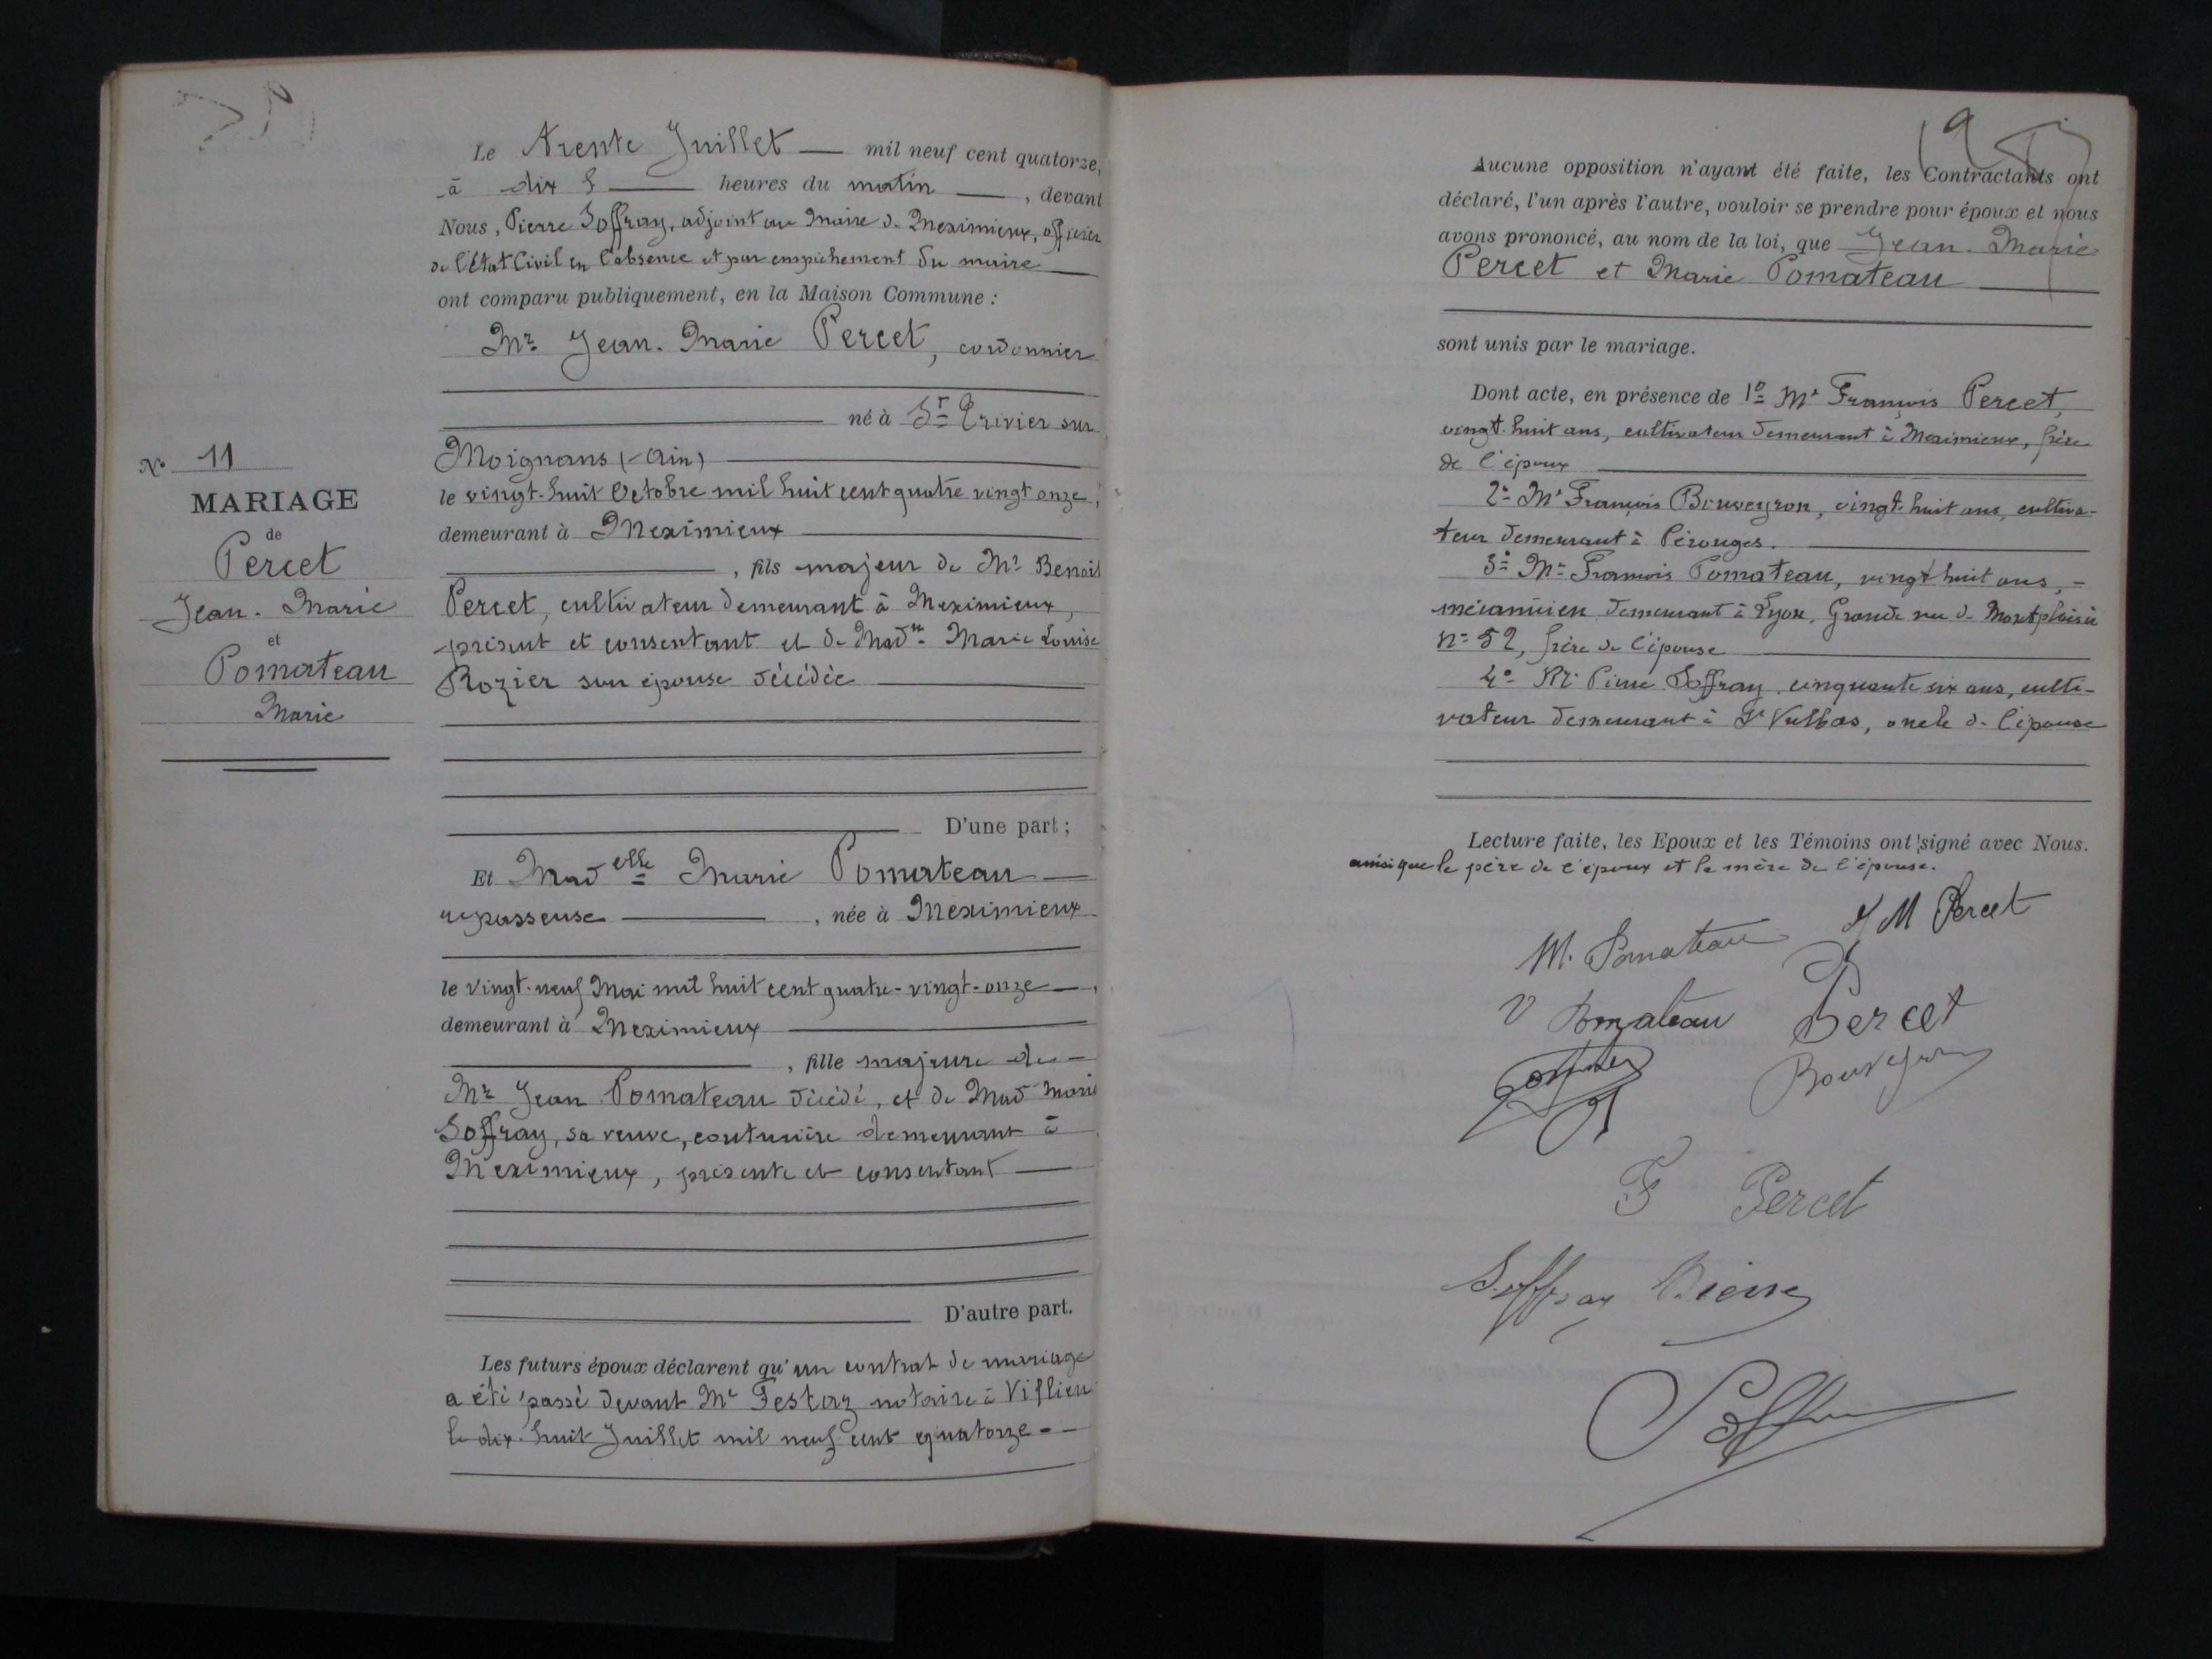 N° 11
MARIAGE
de
Percet
Jean-Marie
et
Pomateau
Marie
Le trente Juillet — mil neuf cent quatorze,
à dix — heures du matin —, devant
Nous, Pierre Soffray, adjoint au Maire de Meximieux, officier
de l'État Civil en l'absence et par empêchement du maire
ont comparu publiquement, en la Maison Commune :
Mr Jean-Marie Percet, cordonnier
né à St Trivier sur
Moignans (Ain)
le vingt-huit Octobre mil huit cent quatre vingt onze,
demeurant à Meximieux
, fils majeur de Mr Benoit
Percet, cultivateur demeurant à Meximieux,
présent et consentant et de Madme Marie Louise
Rozier son épouse décédée
D'une part ;
Et Madelle Marie Pomateau
repasseuse —, née à Meximieux
le vingt-neuf Mai mil huit cent quatre-vingt-onze —,
demeurant à Meximieux
, fille majeure de
Mr Jean Pomateau décédé, et de Mad Marie
Soffray, sa veuve, couturière demeurant à
Meximieux, présente et consentant
D'autre part.
Les futurs époux déclarent qu'un contrat de mariage
a été passé devant Me Festaz notaire à Villieu
le dix-huit Juillet mil neuf cent quatorze
Aucune opposition n'ayant été faite, les Contractants ont
déclaré, l'un après l'autre, vouloir se prendre pour époux et nous
avons prononcé, au nom de la loi, que Jean-Marie
Percet et Marie Pomateau
sont unis par le mariage.
Dont acte, en présence de 1° Mr François Percet,
vingt-huit ans, cultivateur demeurant à Meximieux, frère
de l'époux
2° Mr François Bouveyron, vingt-huit ans, cultiva-
teur demeurant à Pérouges.
3° Mr François Pomateau, vingt huit ans,
mécanicien demeurant à Lyon, Grande rue de Montplaisir
n° 52, frère de l'épouse
4° Mr Pierre Soffray, cinquante six ans, culti-
vateur demeurant à St Vulbas, oncle de l'épouse
Lecture faite, les Epoux et les Témoins ont signé avec Nous.
ainsi que le père de l'époux et la mère de l'épouse.
J M Percet
M. Pomateau
V Pomateau Percet
Bouveyron
F Percet
Soffray Pierre
Soffray